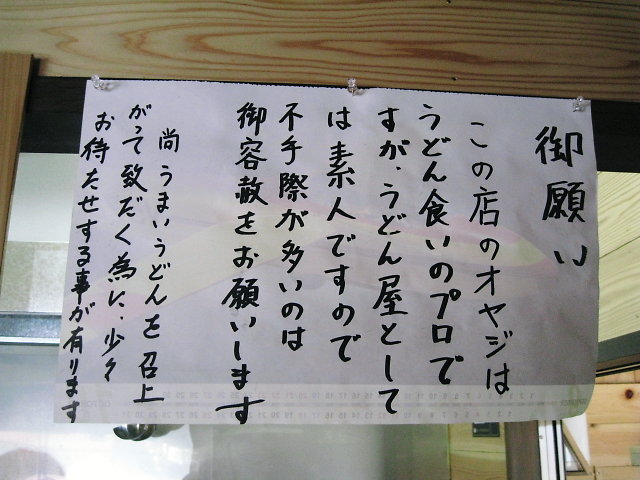 御願い
この店のオヤジは
うどん食いのプロで
すが、うどん屋として
は素人ですので
不手際が多いのは
御容赦をお願いします
尚うまいうどんを召上
がって致だく為に、少々
お待たせする事が有ります